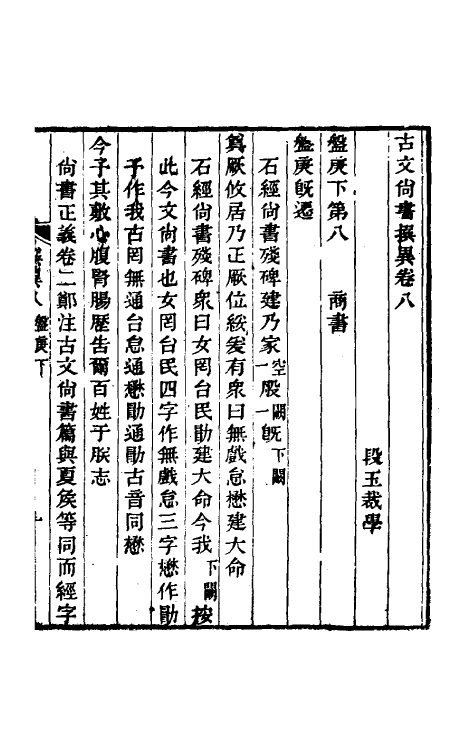 古文尚書撰異卷八
段玉裁學
盤庚下第八　商書
盤庚旣遷
石經尚書殘碑建乃家一空闕殷一旣下闕
奠厥攸居乃正厥位綏爰有衆曰無戲怠懋建大命
石經尚書殘碑衆曰女罔台民勖建大命今我下闕按
此今文尚書也女罔台民四字作無戲怠三字懋作勖
予作我古罔無通台怠通懋勖通勖古音同懋
今予其敷心腹腎腸歷吿爾百姓于朕志
尚書正義卷二鄭注古文尚書篇與夏矦等同而經字
盤庚下